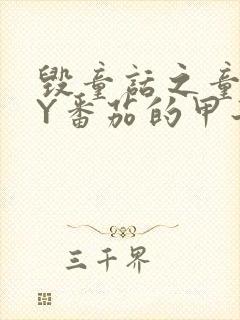 毁童话之童
Y番茄的甲
三千界